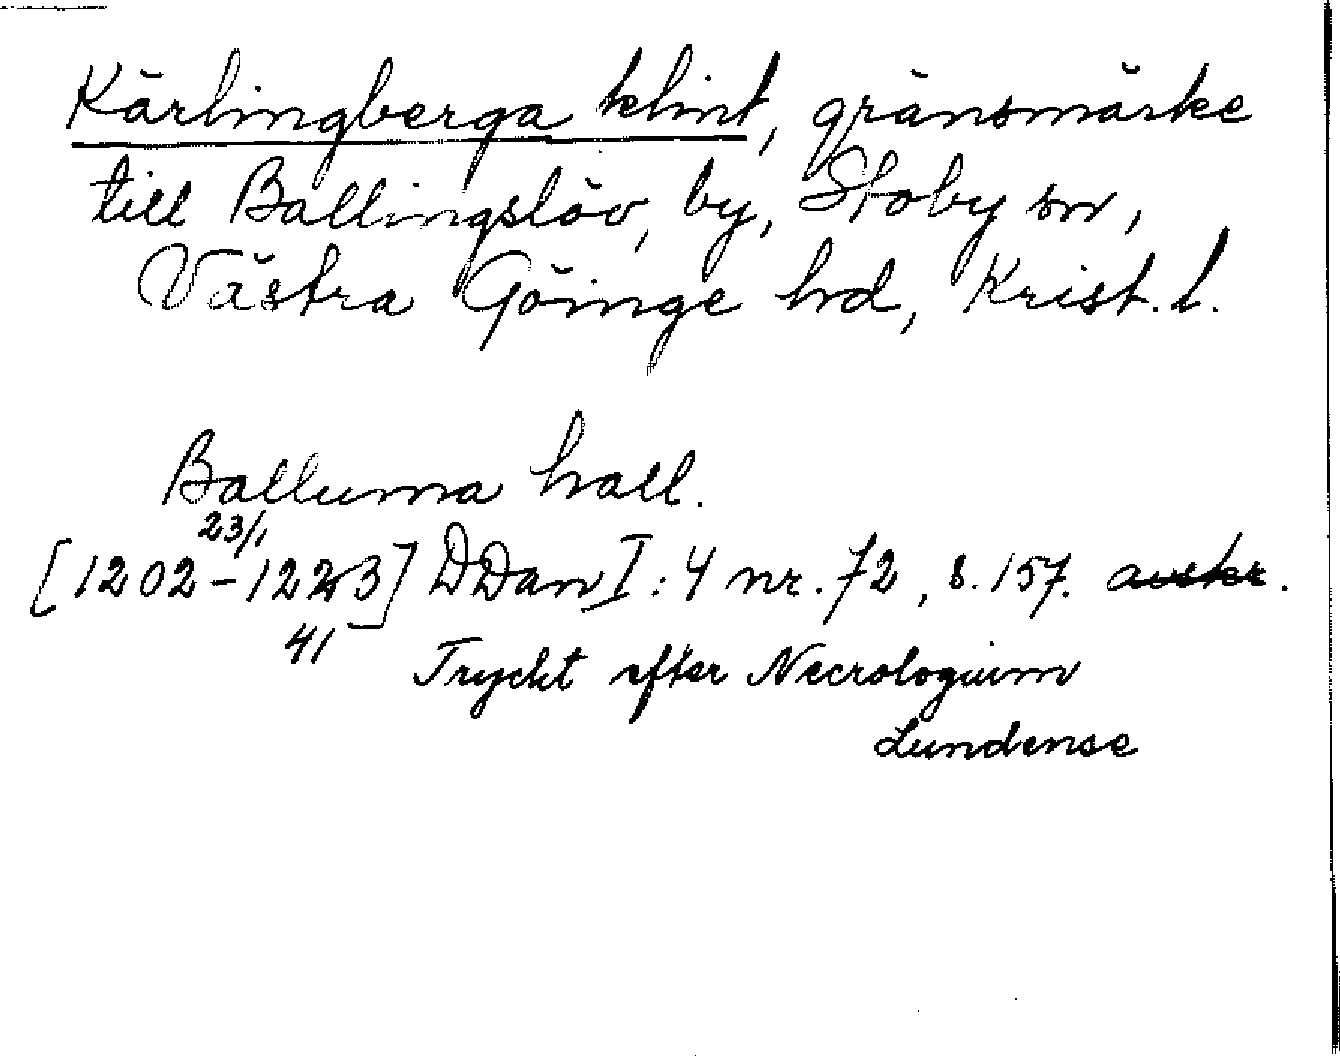 Kärlingberga klint, gränsmärke
till Ballingslöv, by, Stoby sn,
Västra Göinge hd, Krist. l.
Balluma hall.
23/1
[1202-1223] DDan I:4 nr. 72, s. 157. avskr.
41
Tryckt efter Necrologium
Lundense